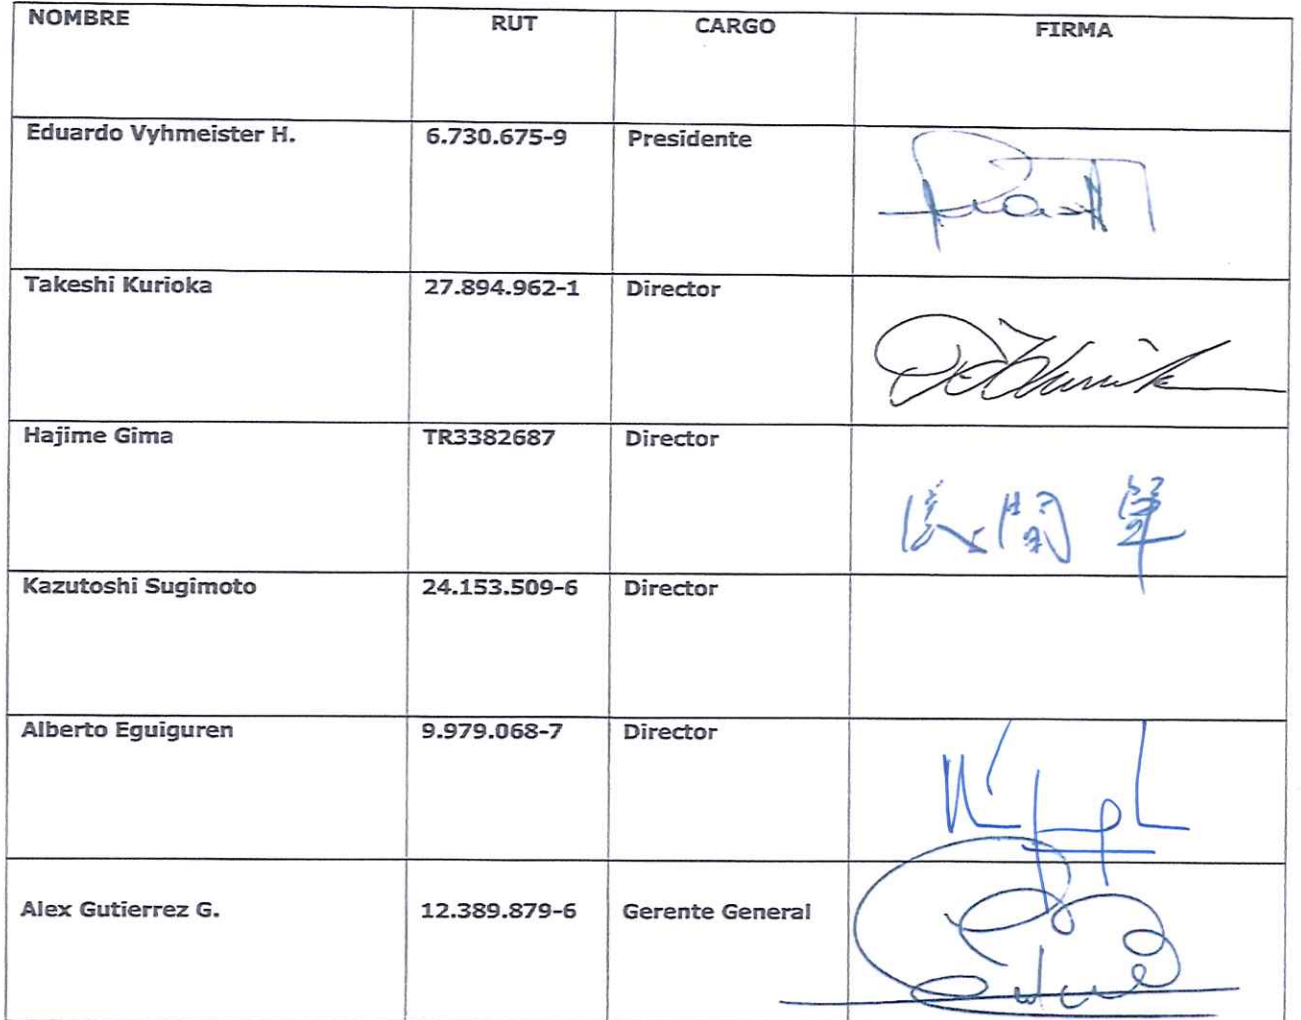 NOMBRE RUT CARGO FIRMA
Eduardo Vyhmeister H. 6.730.675-9 Presidente
Takeshi Kurioka 27.894.962-1 Director
Hajime Gima TR3382687 Director
Kazutoshi Sugimoto 24.153.509-6 Director
Alberto Eguiguren 9.979.068-7 Director
Alex Gutierrez G. 12.389.879-6 Gerente General